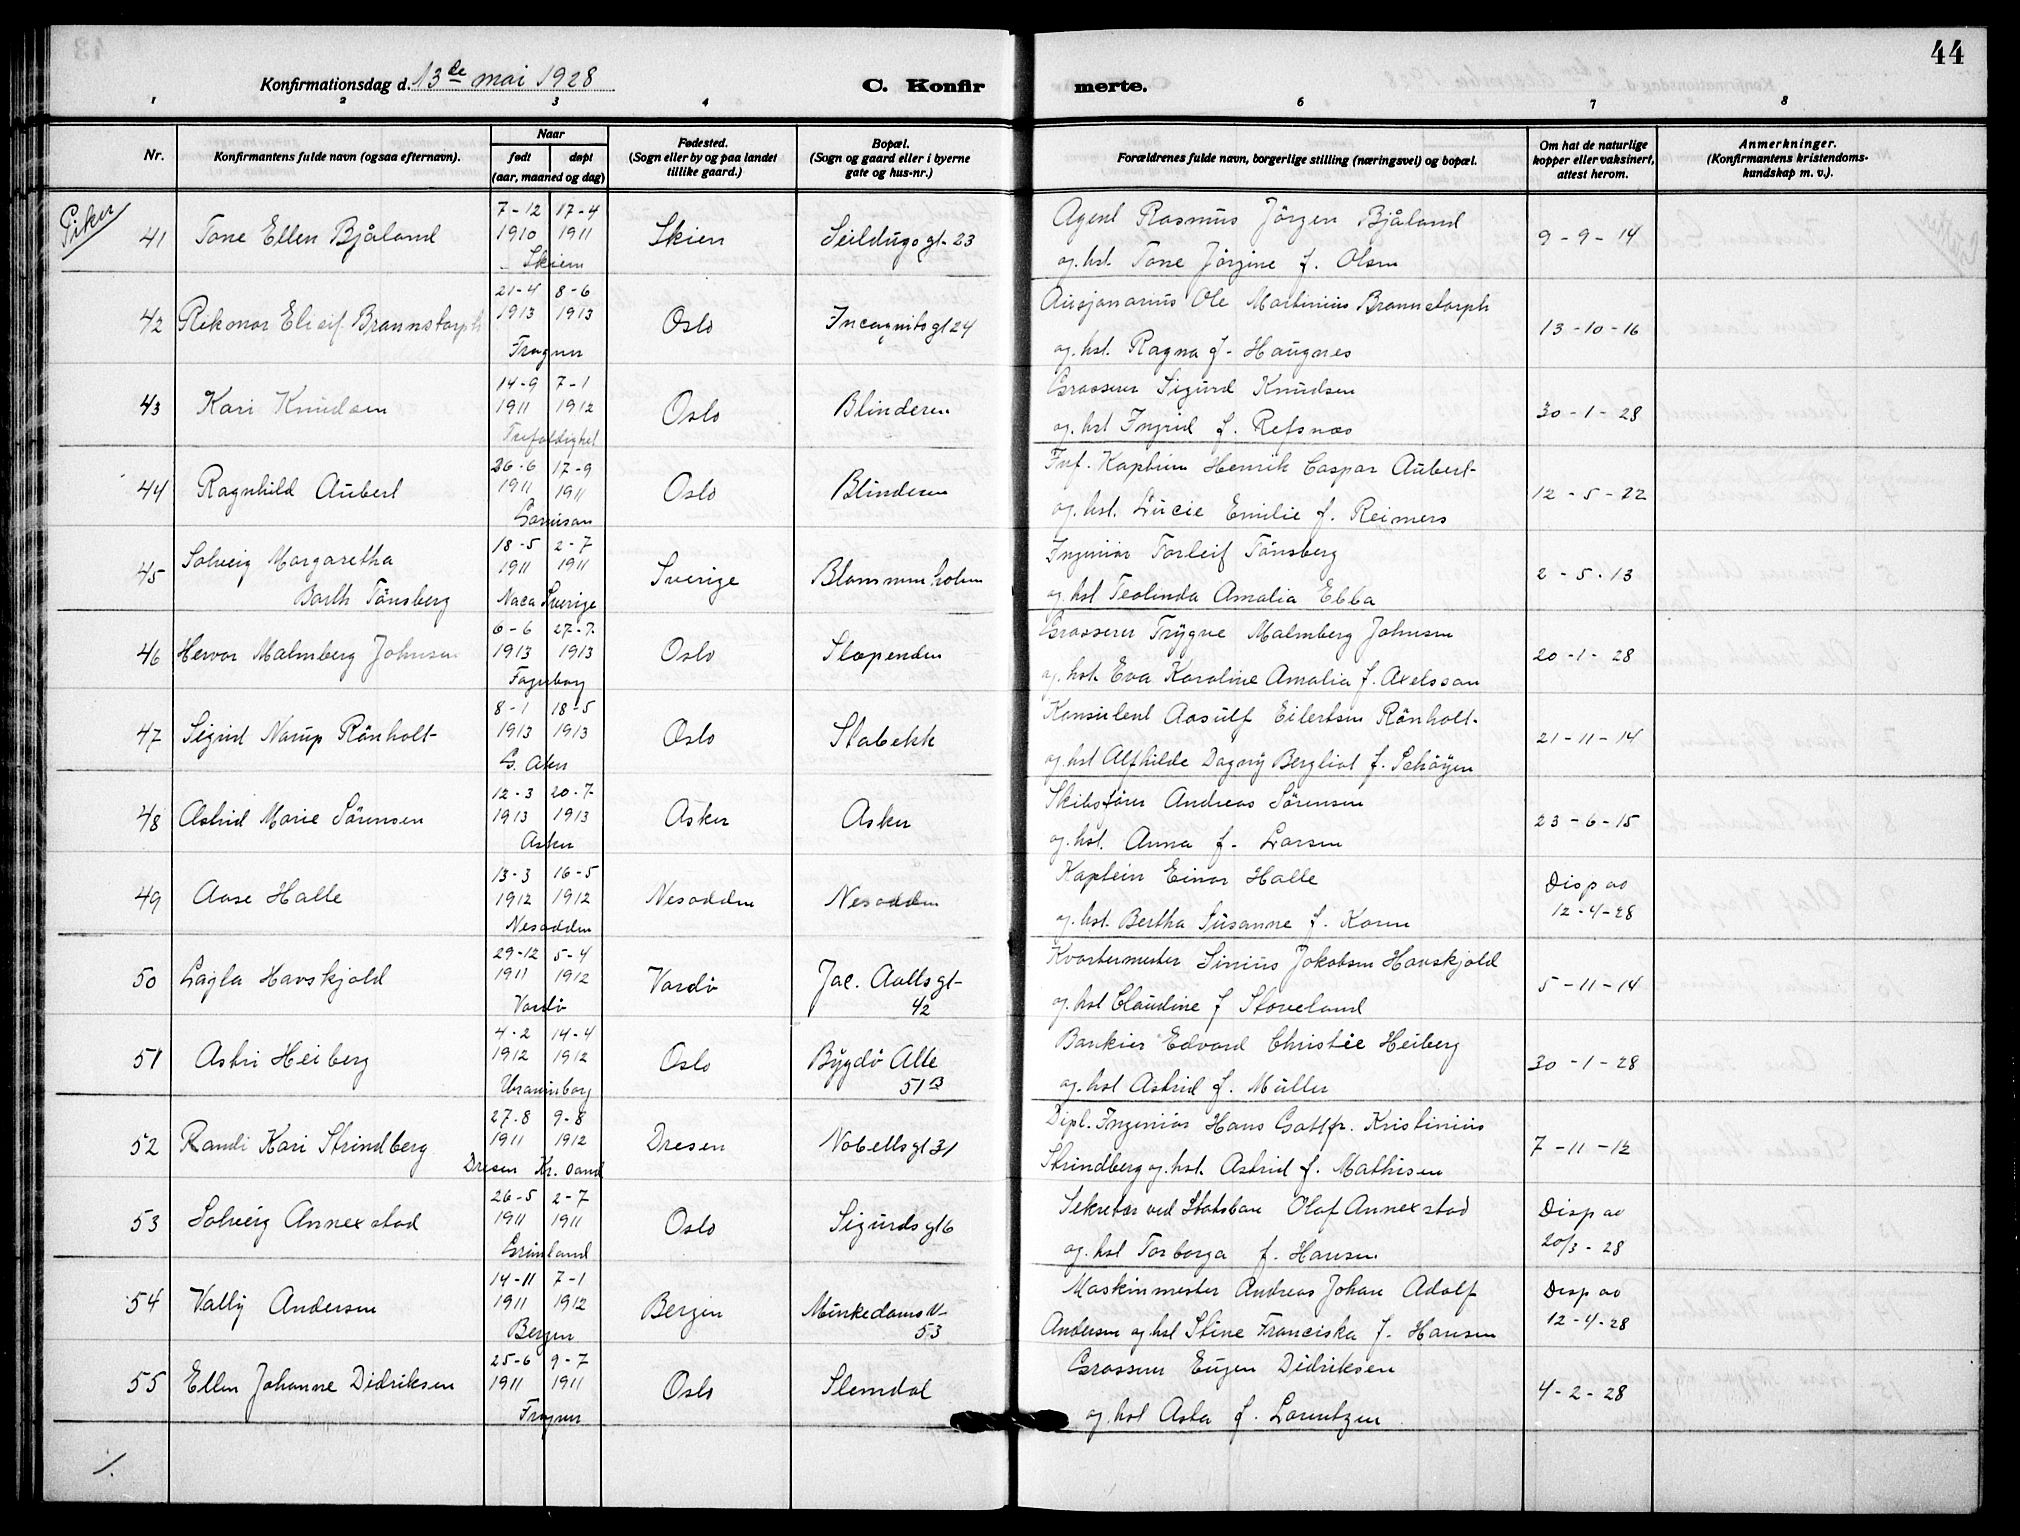 44
Konfirmationsdag d. 13de mai 1928
C. Konfirmerte.
1 2 3 4 6 7 8
Nr.
Konfirmantens fulde navn (ogsaa efternavn).
Naar
født døpt
(aar, maaned og dag)
Fødested.
(Sogn eller by og paa landet
tillike gaard.)
Bopæl.
(Sogn og gaard eller i byerne
gate og hus-nr.)
Forældrenes fulde navn, borgerlige stilling (næringsvei) og bopæl.
Om hat de naturlige
kopper eller vaksinert,
attest herom.
Anmerkninger.
(Konfirmantens kristendoms-
kundskap m. v.).
Piker
7-12 17-4 Agent Rasmus Jörgen Bjåland
41 Tone Ellen Bjåland 1910 1911 Skien Seildugsgt. 23 9-9-14
Skien og. hst. Tone Jörgine f. Olsen
21-4 8-6 Ole Martinius Brannstorph
42 Eleif Brannstorph 1913 1913 Oslo Incognitogt 24 13-10-16
Frogner og. hst. Ragna f. Haugnes
14-9 7-1 Grosserer Sigurd Knudsen
43 Kari Knudsen 1911 1912 Oslo Blinderen 30-1-28
Trefoldighet og. hst Ingrid f. Refsnæs
26-6 17-9 Inf. Kaptein Henrik Caspar Aubert
44 Ragnhild Aubert 1911 1911 Oslo Blinderen 12-5-22
Garnison og. hst. Lucie Emilie f. Reimers
18-5 2-7 Ingeniör Torleif Tönsberg
45 Solveig Margaretha 1911 1911 Sverige Blommenholm 2-5-13
Barth Tönsberg Naca Sverige og hst Teolinda Amalia Ebba
6-6 27-7 Grosserer Trygve Malmberg Johnsen
46 Hervor Malmberg Johnsen 1913 1913 Oslo Slependen 20-1-28
Fagerborg og. hst. Eva Karoline Amalia f. Axelsson
8-1 18-5 Konsulent Aasulf Eilertsen Rönholt
47 Sigrid Narup Rönholt 1913 1913 Oslo Stabekk 21-11-14
G. Aker og hst Alfhilde Dagny Bergliot f. Schöyen
12-3 20-7 Skibsförer Andreas Sörensen
48 Astrid Marie Sörensen 1913 1913 Asker Asker 23-6-15
Asker og. hst. Anna f. Larsen
13-3 16-5 Kaptein Einar Halle Disp av
49 Aase Halle 1912 1912 Nesodden Nesodden 12-4-28
Nesodden og. hst. Bertha Susanne f. Korn
29-12 5-4 Kvartermester Sinius Jakobsen Havskjold
50 Lagla Havskjold 1911 1912 Vardö Jac. Aallsgt 42 5-11-14
Vardö og. hst Claudine f Stoveland
4-2 14-4 Bankier Edvard Christie Heiberg
51 Astri Heiberg 1912 1912 Oslo Bygdö Alle 51B 30-1-28
Uranienborg og hst Astrid f. Müller
27-8 9-8 Dipl. Ingeniör Hans Gottfr. Kristinius
52 Randi Kari Strindberg 1911 1912 Dresen Nobellsgt 31 7-11-12
Dresen Kr. sand Strindberg og. hst. Astrid f. Mathisen
26-5 2-7 Sekretær ved Statsban Olaf Annexstad Disp av
53 Solveig Annexstad 1911 1911 Oslo Sigurdsgt 6 20/3-28
Grönland og. hst Torborga f. Hansen
14-11 7-1 Maskinmester Andreas Johan Adolf Disp av
54 Vally Andersen 1911 1912 Bergen Munkedamsv 53 12-4-28
Bergen Andersen og hst Stine Franciska f. Hansen
25-6 9-7 Grosserer Eugen Didriksen
55 Ellen Johanne Didriksen 1911 1911 Oslo Slemdal 4-2-28
Frogner og hst Asta f. Lorentzen